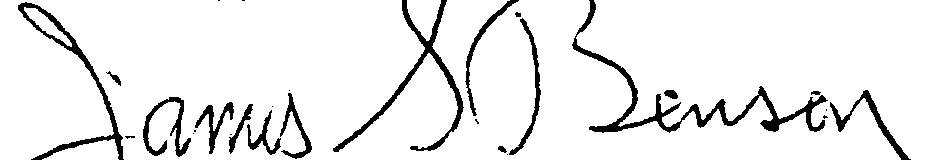 James S Benson